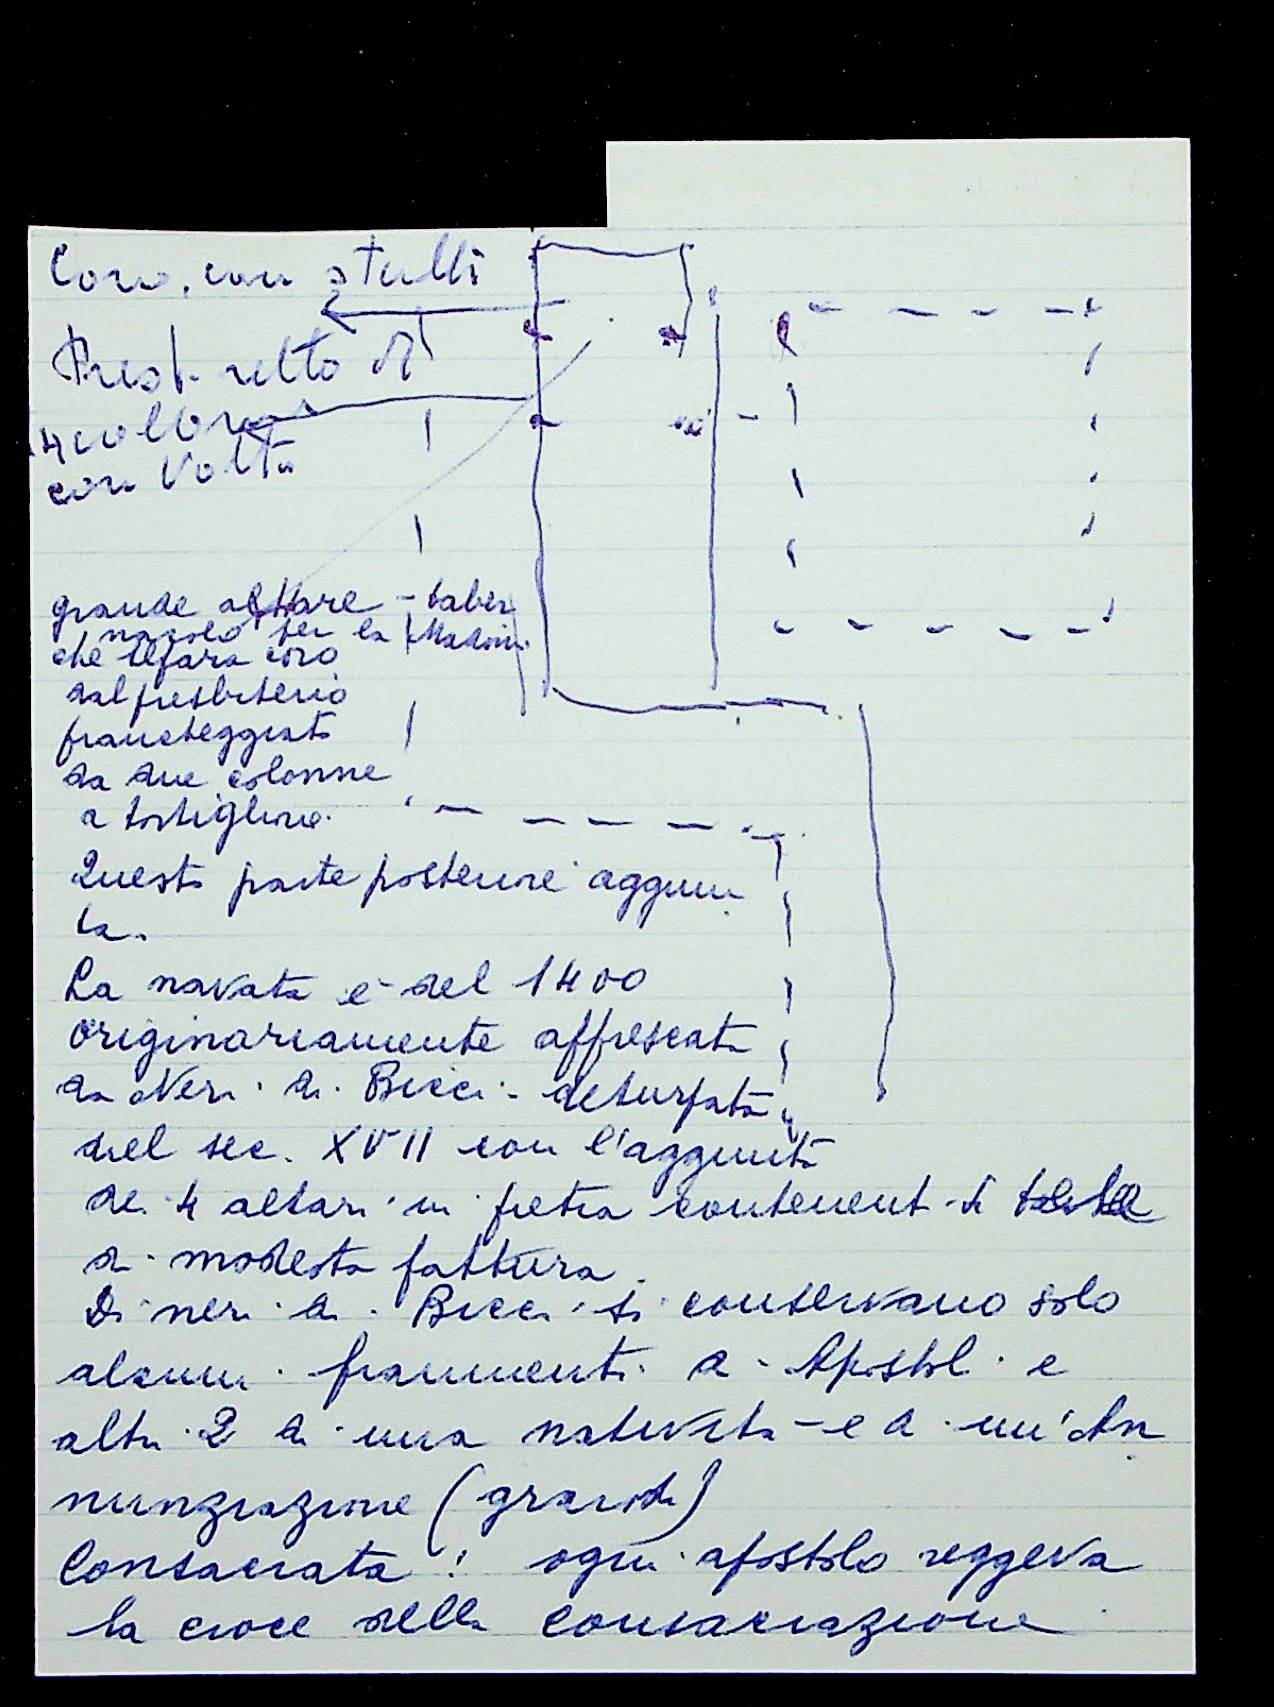 Coro, con stalli
Presb. retto da
4 colonne
con Volta
grande altare - taber
nacolo per la Madon.
che separa coro
dal presbiterio
fiancheggiato
da due colonne
a tortiglione.
Questa parte posteriore aggiun
ta.
La navata è del 1400
originariamente affrescata
da Neri di Bicci - deturpata
nel sec. XVII con l'aggiunta
di 4 altari in pietra contenenti tele
di modesta fattura.
Di neri di Bicci si conservano solo
alcuni frammenti di Apostoli e
altri 2 di una natività - e di un'An
nunziazione (grandi)
Consacrata: ogni apostolo reggeva
la croce della consacrazione